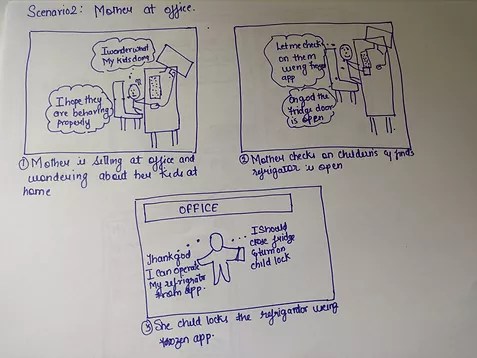 Scenario2: Mother at office.
I wonder what
My kids doing
I hope they
are behaving
properly
① Mother is sitting at office and
wondering about her kids at
home
Let me check
on them
using
app
Oh god the
fridge door
is open
② Mother checks on childrens & finds
refrigirator is open
OFFICE
Thank god
I can operate
My refrigrator
from app.
I Should
close fridge
& turn on
child lock
③ She child locks the refrigirator using
frozen app.